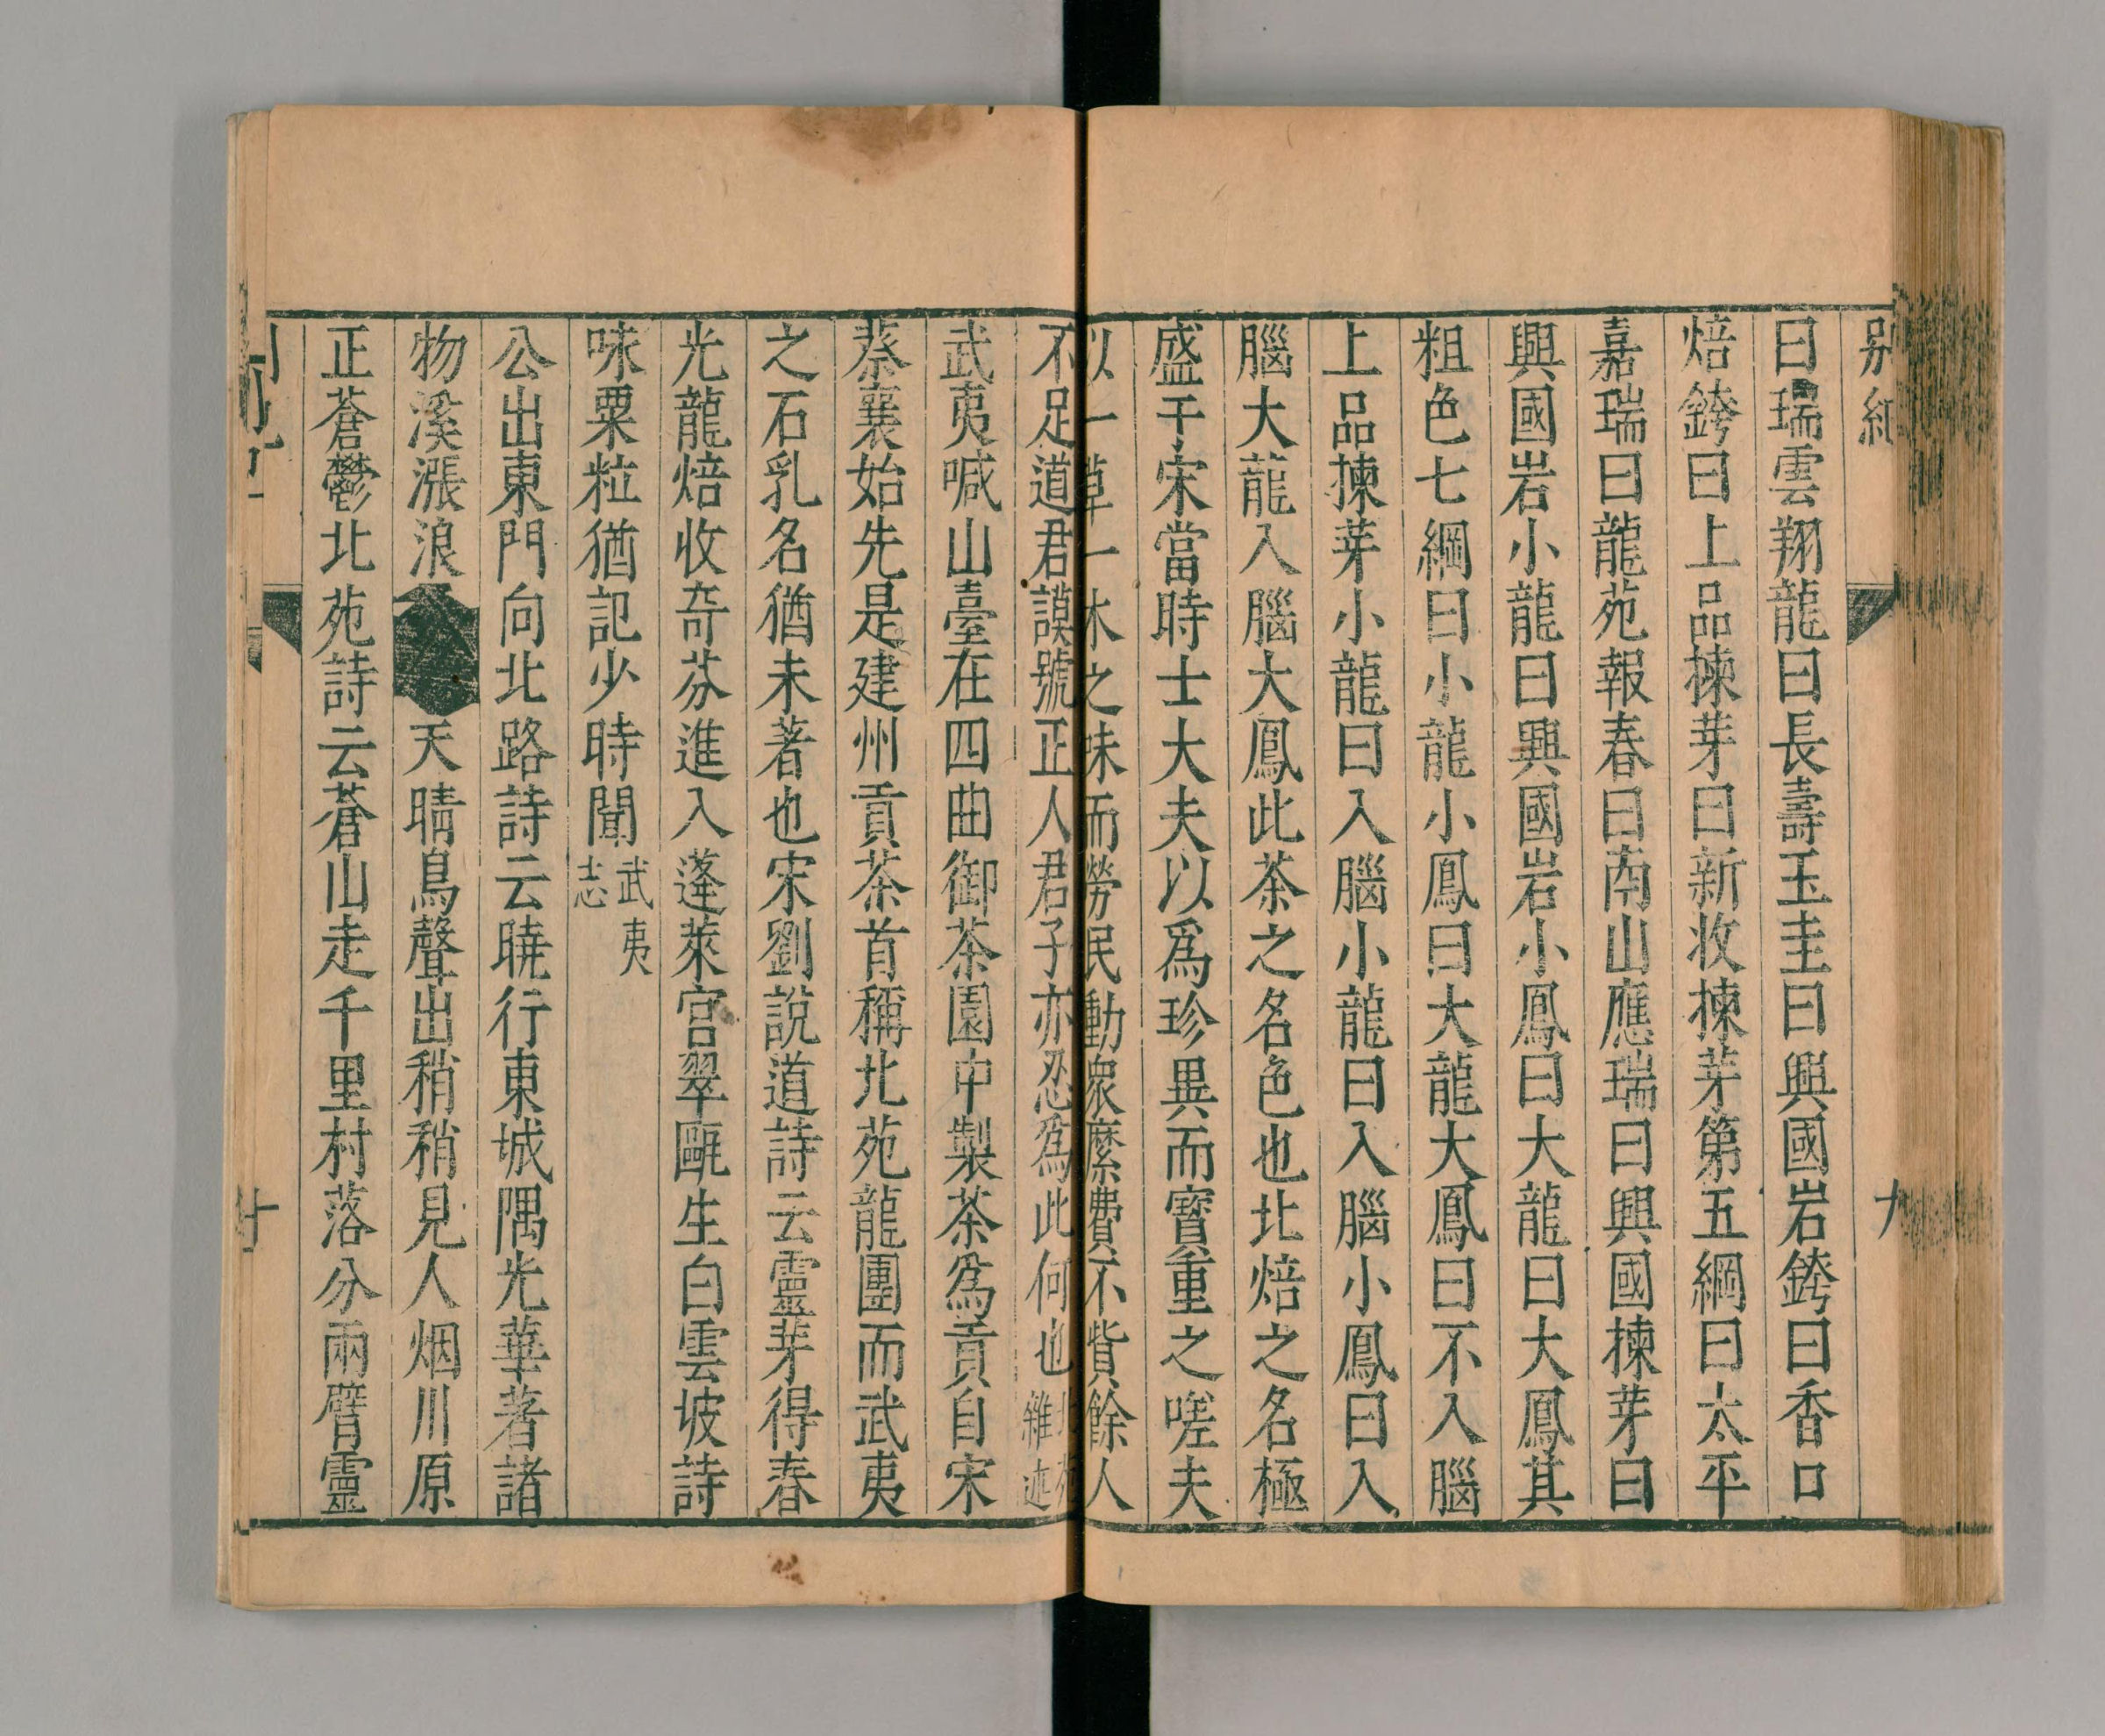 別紀
曰瑞雲翔龍曰長壽玉圭曰興國岩銙曰香口
焙銙曰上品揀芽曰新收揀芽第五綱曰太平
嘉瑞曰龍苑報春曰南山應瑞曰興國揀芽曰
興國岩小龍曰興國岩小鳳曰大龍曰大鳳其
粗色七綱曰小龍小鳳曰大龍大鳳曰不入腦
上品揀芽小龍曰入腦小龍曰入腦小鳳曰入
腦大龍入腦大鳳此茶之名色也北焙之名極
盛于宋當時士大夫以爲珍異而寶重之嗟夫
以一草一木之味而勞民動衆縻費不貲餘人
不足道君謨號正人君子亦忍爲此何也北苑雜述
武夷喊山臺在四曲御茶園中製茶爲貢自宋
蔡襄始先是建州貢茶首稱北苑龍團而武夷
之石乳名猶未著也宋劉說道詩云靈芽得春
光龍焙收奇芬進入蓬萊宮翠甌生白雲坡詩
咏粟粒猶記少時聞武夷志
公出東門向北路詩云曉行東城隅光華著諸
物溪漲浪天晴鳥聲出稍稍見人烟川原
正蒼鬱北苑詩云蒼山走千里村落分兩臂靈